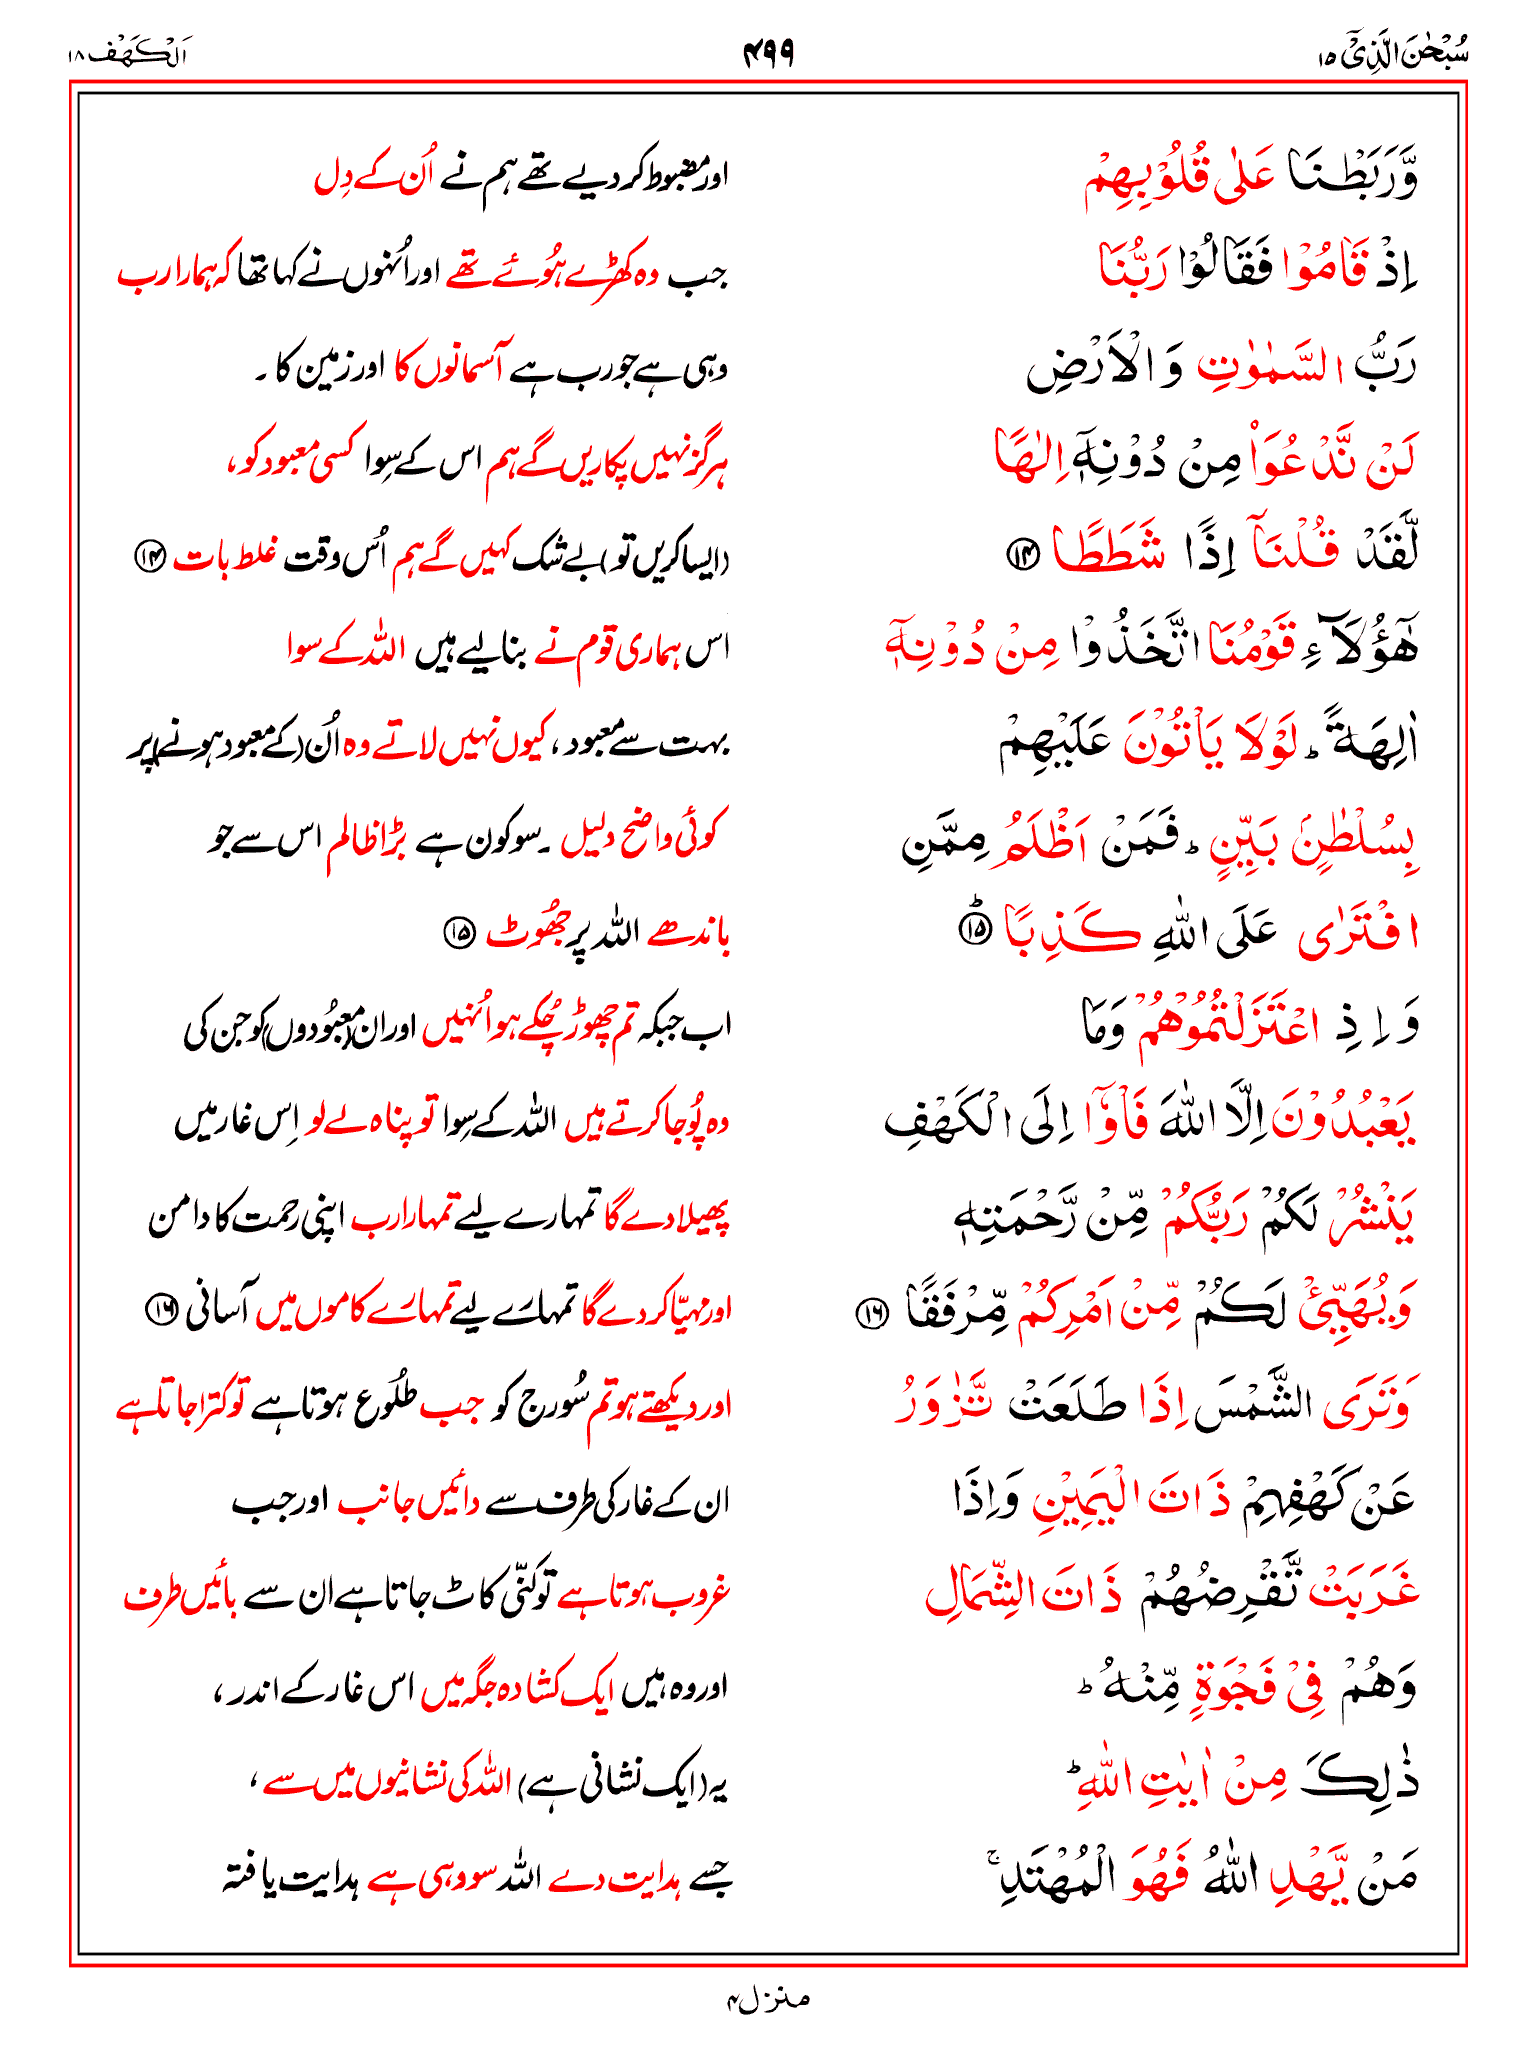 سُبْحٰنَ الَّذِیْۤ ۱۵
۴۹۹
اَلْکَهْف ۱۸
وَّرَبَطْنَا عَلٰی قُلُوْبِهِمْ
اور مضبوط کر دیے تھے ہم نے اُن کے دِل
اِذْ قَامُوْا فَقَالُوْا رَبُّنَا
جب وہ کھڑے ہُوئے تھے اور اُنہوں نے کہا تھا کہ ہمارا رب
رَبُّ السَّمٰوٰتِ وَالْاَرْضِ
وہی ہے جو رب ہے آسمانوں کا اور زمین کا ۔
لَنْ نَّدْعُوَاۡ مِنْ دُوْنِهٖۤ اِلٰهًا
ہرگز نہیں پکاریں گے ہم اس کے سِوا کسی معبود کو،
لَّقَدْ قُلْنَاۤ اِذًا شَطَطًا ۱۴
(ایسا کریں تو) بے شک کہیں گے ہم اُس وقت غلط بات ۱۴
هٰۤؤُلَآءِ قَوْمُنَا اتَّخَذُوْا مِنْ دُوْنِهٖۤ
اس ہماری قوم نے بنا لیے ہیں اللہ کے سوا
اٰلِهَةً ؕ لَوْلَا یَاْتُوْنَ عَلَیْهِمْ
بہت سے معبود، کیوں نہیں لاتے وہ اُن (کے معبود ہونے) پر
بِسُلْطٰنٍۭ بَیِّنٍ ؕ فَمَنْ اَظْلَمُ مِمَّنِ
کوئی واضح دلیل ۔ سو کون ہے بڑا ظالم اس سے جو
افْتَرٰی عَلَی اللّٰهِ كَذِبًا ؕ۱۵
باندھے اللہ پر جھُوٹ ۱۵
وَاِذِ اعْتَزَلْتُمُوْهُمْ وَمَا
اب جبکہ تم چھوڑ چُکے ہو اُنہیں اور ان (معبُودوں) کو جن کی
یَعْبُدُوْنَ اِلَّا اللّٰهَ فَاْوٗۤا اِلَی الْكَهْفِ
وہ پُوجا کرتے ہیں اللہ کے سِوا تو پناہ لے لو اِس غار میں
یَنْشُرْ لَكُمْ رَبُّكُمْ مِّنْ رَّحْمَتِهٖ
پھیلا دے گا تمہارے لیے تمہارا رب اپنی رحمت کا دامن
وَیُهَیِّئْ لَكُمْ مِّنْ اَمْرِكُمْ مِّرْفَقًا ۱۶
اور مہیّا کر دے گا تمہارے لیے تمہارے کاموں میں آسانی ۱۶
وَتَرَی الشَّمْسَ اِذَا طَلَعَتْ تَّزٰوَرُ
اور دیکھتے ہو تم سُورج کو جب طلُوع ہوتا ہے تو کترا جاتا ہے
عَنْ كَهْفِهِمْ ذَاتَ الْیَمِیْنِ وَاِذَا
ان کے غار کی طرف سے دائیں جانب اور جب
غَرَبَتْ تَّقْرِضُهُمْ ذَاتَ الشِّمَالِ
غروب ہوتا ہے تو کنّی کاٹ جاتا ہے ان سے بائیں طرف
وَهُمْ فِیْ فَجْوَةٍ مِّنْهُ ؕ
اور وہ ہیں ایک کشادہ جگہ میں اس غار کے اندر،
ذٰلِكَ مِنْ اٰیٰتِ اللّٰهِ ؕ
یہ (ایک نشانی ہے) اللہ کی نشانیوں میں سے،
مَنْ یَّهْدِ اللّٰهُ فَهُوَ الْمُهْتَدِ ۚ
جسے ہدایت دے اللہ سو وہی ہے ہدایت یافتہ
منزل۴